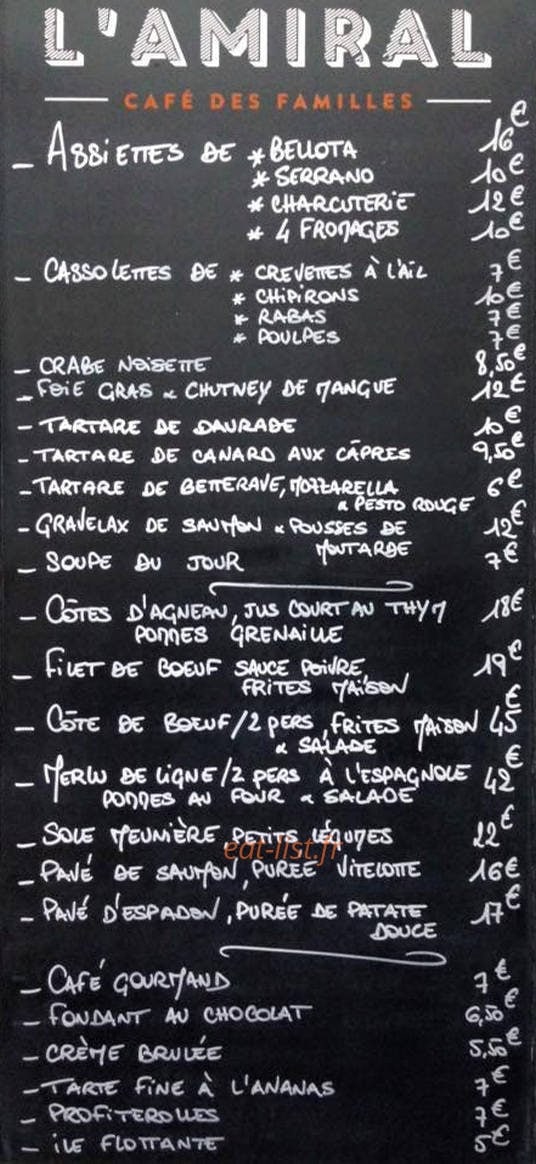 L'AMIRAL
CAFÉ DES FAMILLES
- ASSIETTES DE * BELLOTA 16€
* SERRANO 10€
* CHARCUTERIE 12€
* 4 FROMAGES 10€
- CASSOLETTES DE * CREVETTES À L'AIL 7€
* CHIPIRONS 10€
* RABAS 7€
* POULPES 7€
- CRABE NOISETTE 8,50€
- FOIE GRAS & CHUTNEY DE MANGUE 12€
- TARTARE DE DAURADE 10€
- TARTARE DE CANARD AUX CÂPRES 9,50€
- TARTARE DE BETTERAVE, MOZZARELLA 6€
& PESTO ROUGE
- GRAVELAX DE SAUMON & POUSSES DE 12€
MOUTARDE
- SOUPE DU JOUR 7€
- CÔTES D'AGNEAU, JUS COURT AU THYM 18€
POMMES GRENAILLE
- FILET DE BOEUF SAUCE POIVRE, 19€
FRITES MAISON
- CÔTE DE BOEUF/2 PERS, FRITES MAISON 45€
& SALADE
- MERLU DE LIGNE/2 PERS À L'ESPAGNOLE 42€
POMMES AU FOUR & SALADE
- SOLE MEUNIÈRE, PETITS LÉGUMES 22€
eat-list.fr
- PAVÉ DE SAUMON, PURÉE VITELOTTE 16€
- PAVÉ D'ESPADON, PURÉE DE PATATE 17€
DOUCE
- CAFÉ GOURMAND 7€
- FONDANT AU CHOCOLAT 6,50€
- CRÈME BRULÉE 5,50€
- TARTE FINE À L'ANANAS 7€
- PROFITEROLLES 7€
- ILE FLOTTANTE 5€